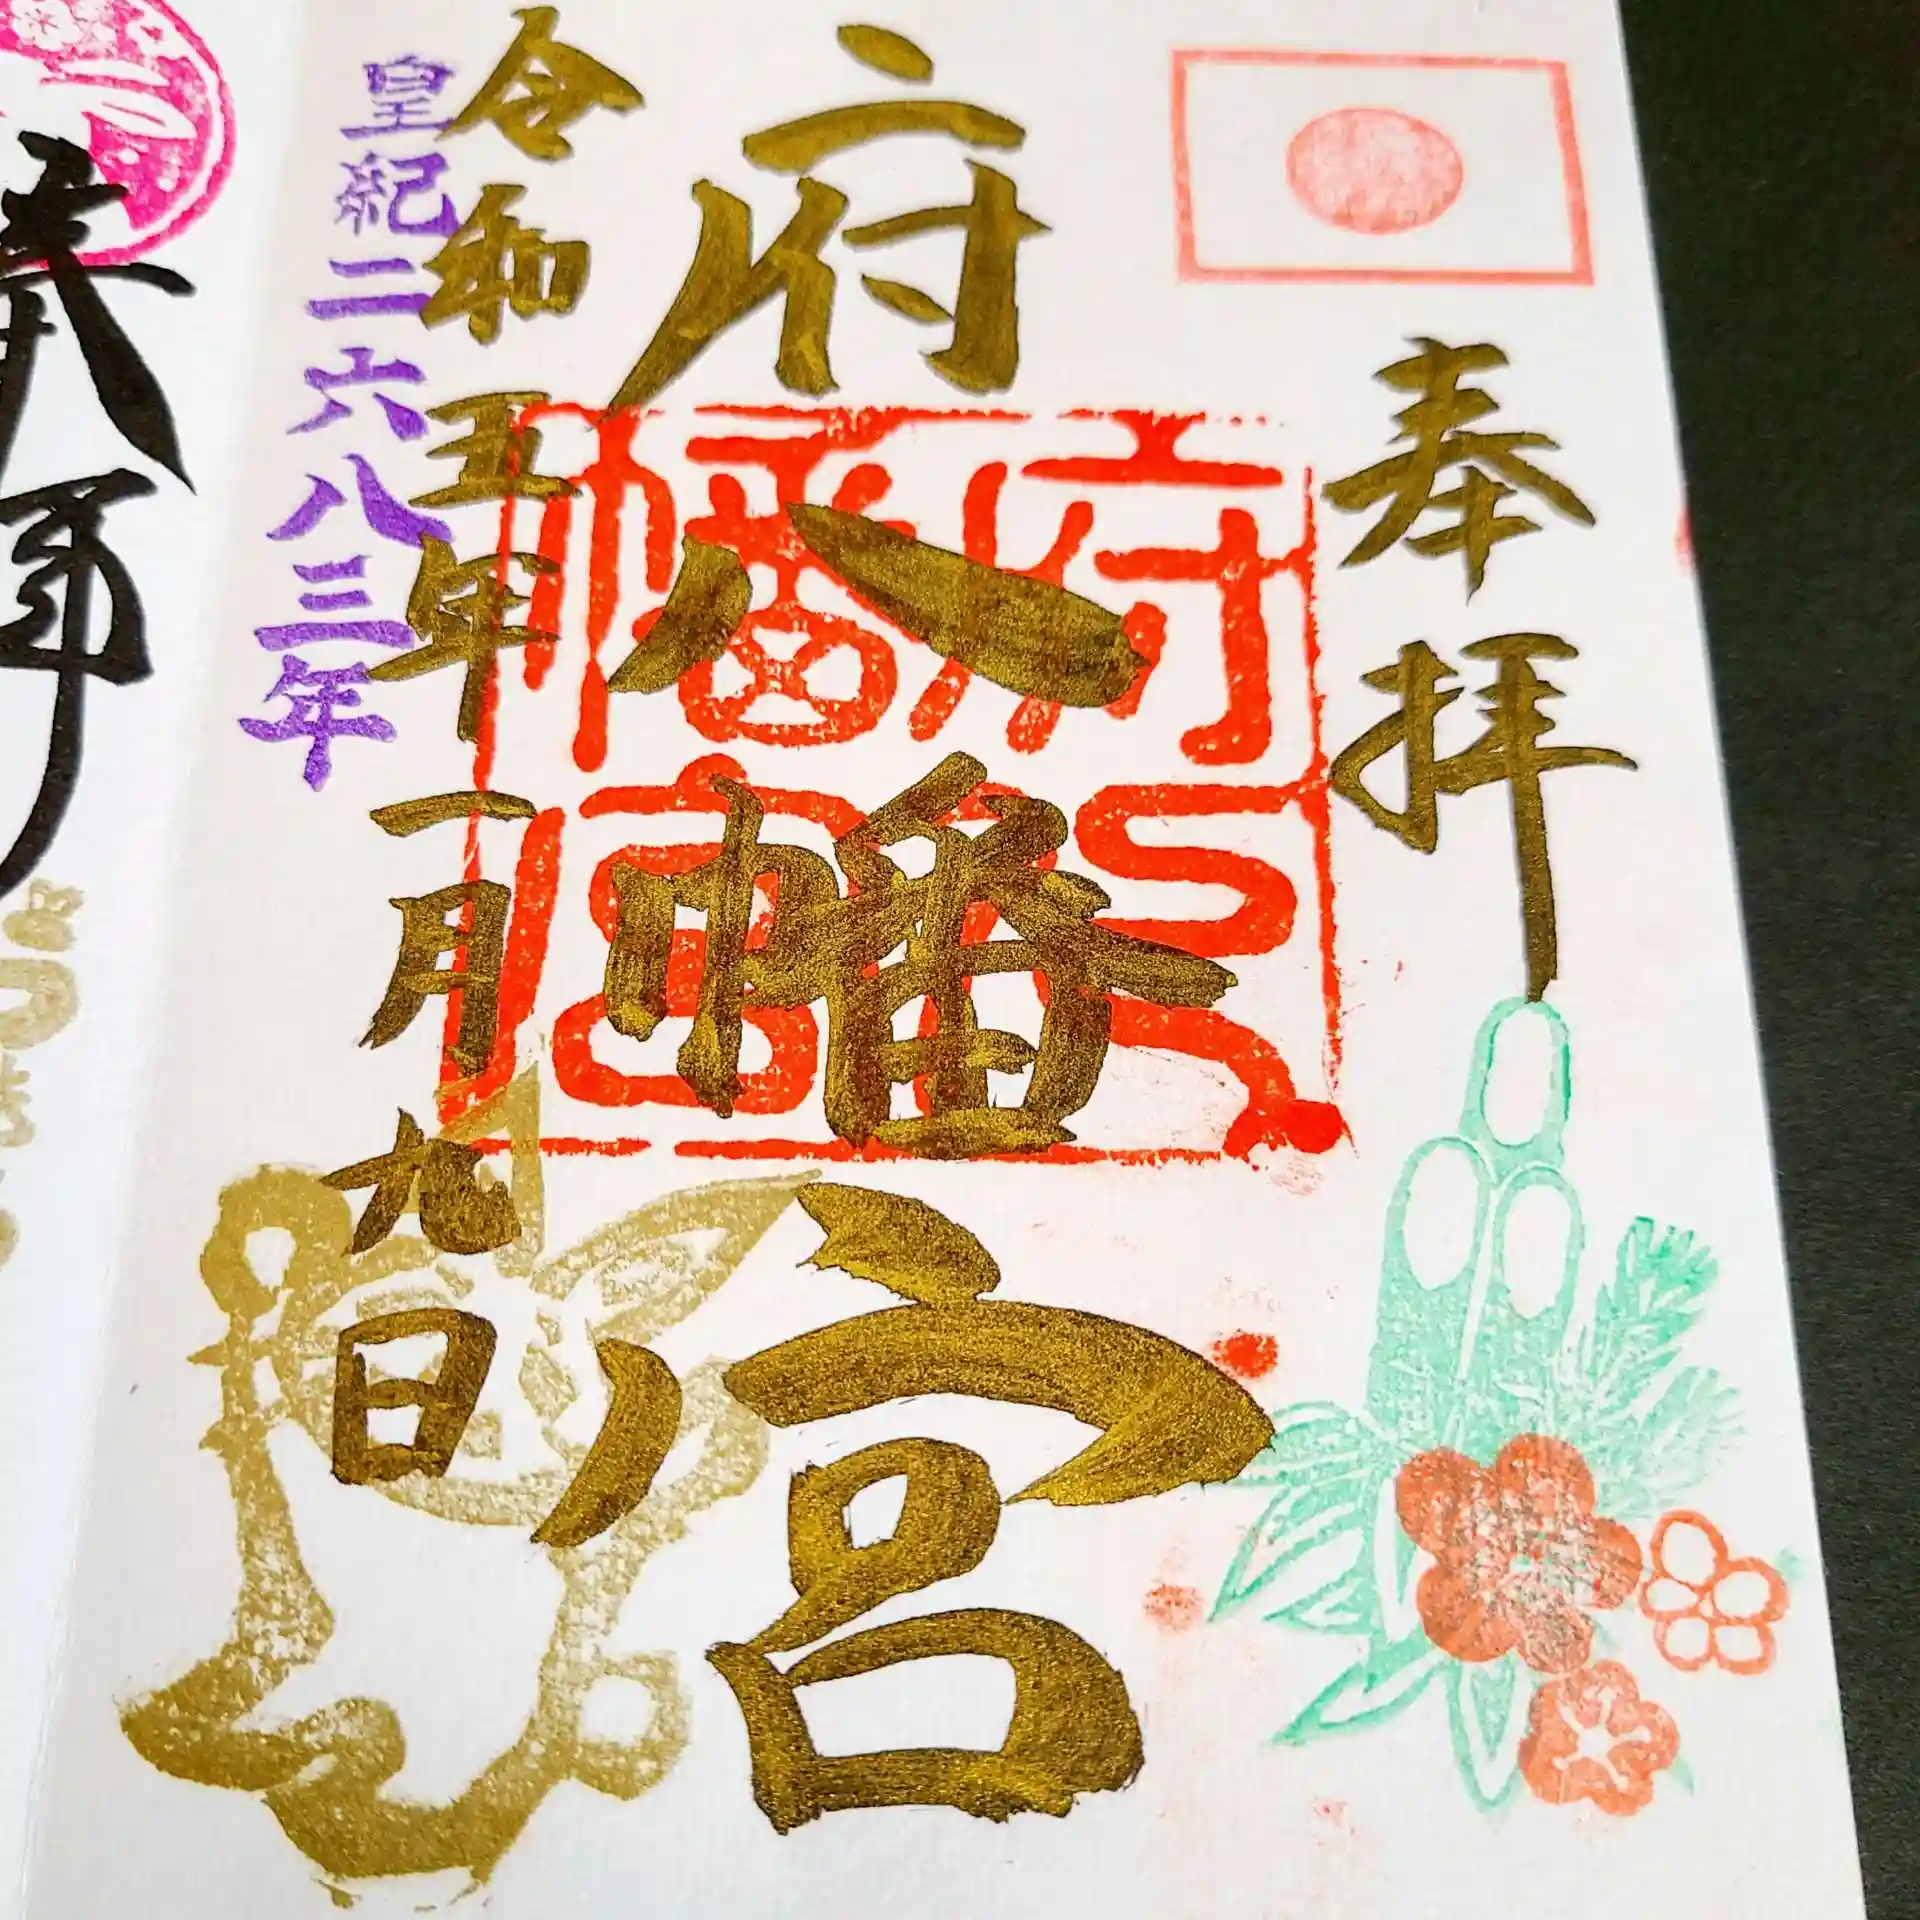 奉拝
府八幡宮
令和五年一月九日
皇紀二六八三年
府八幡宮
奉拝